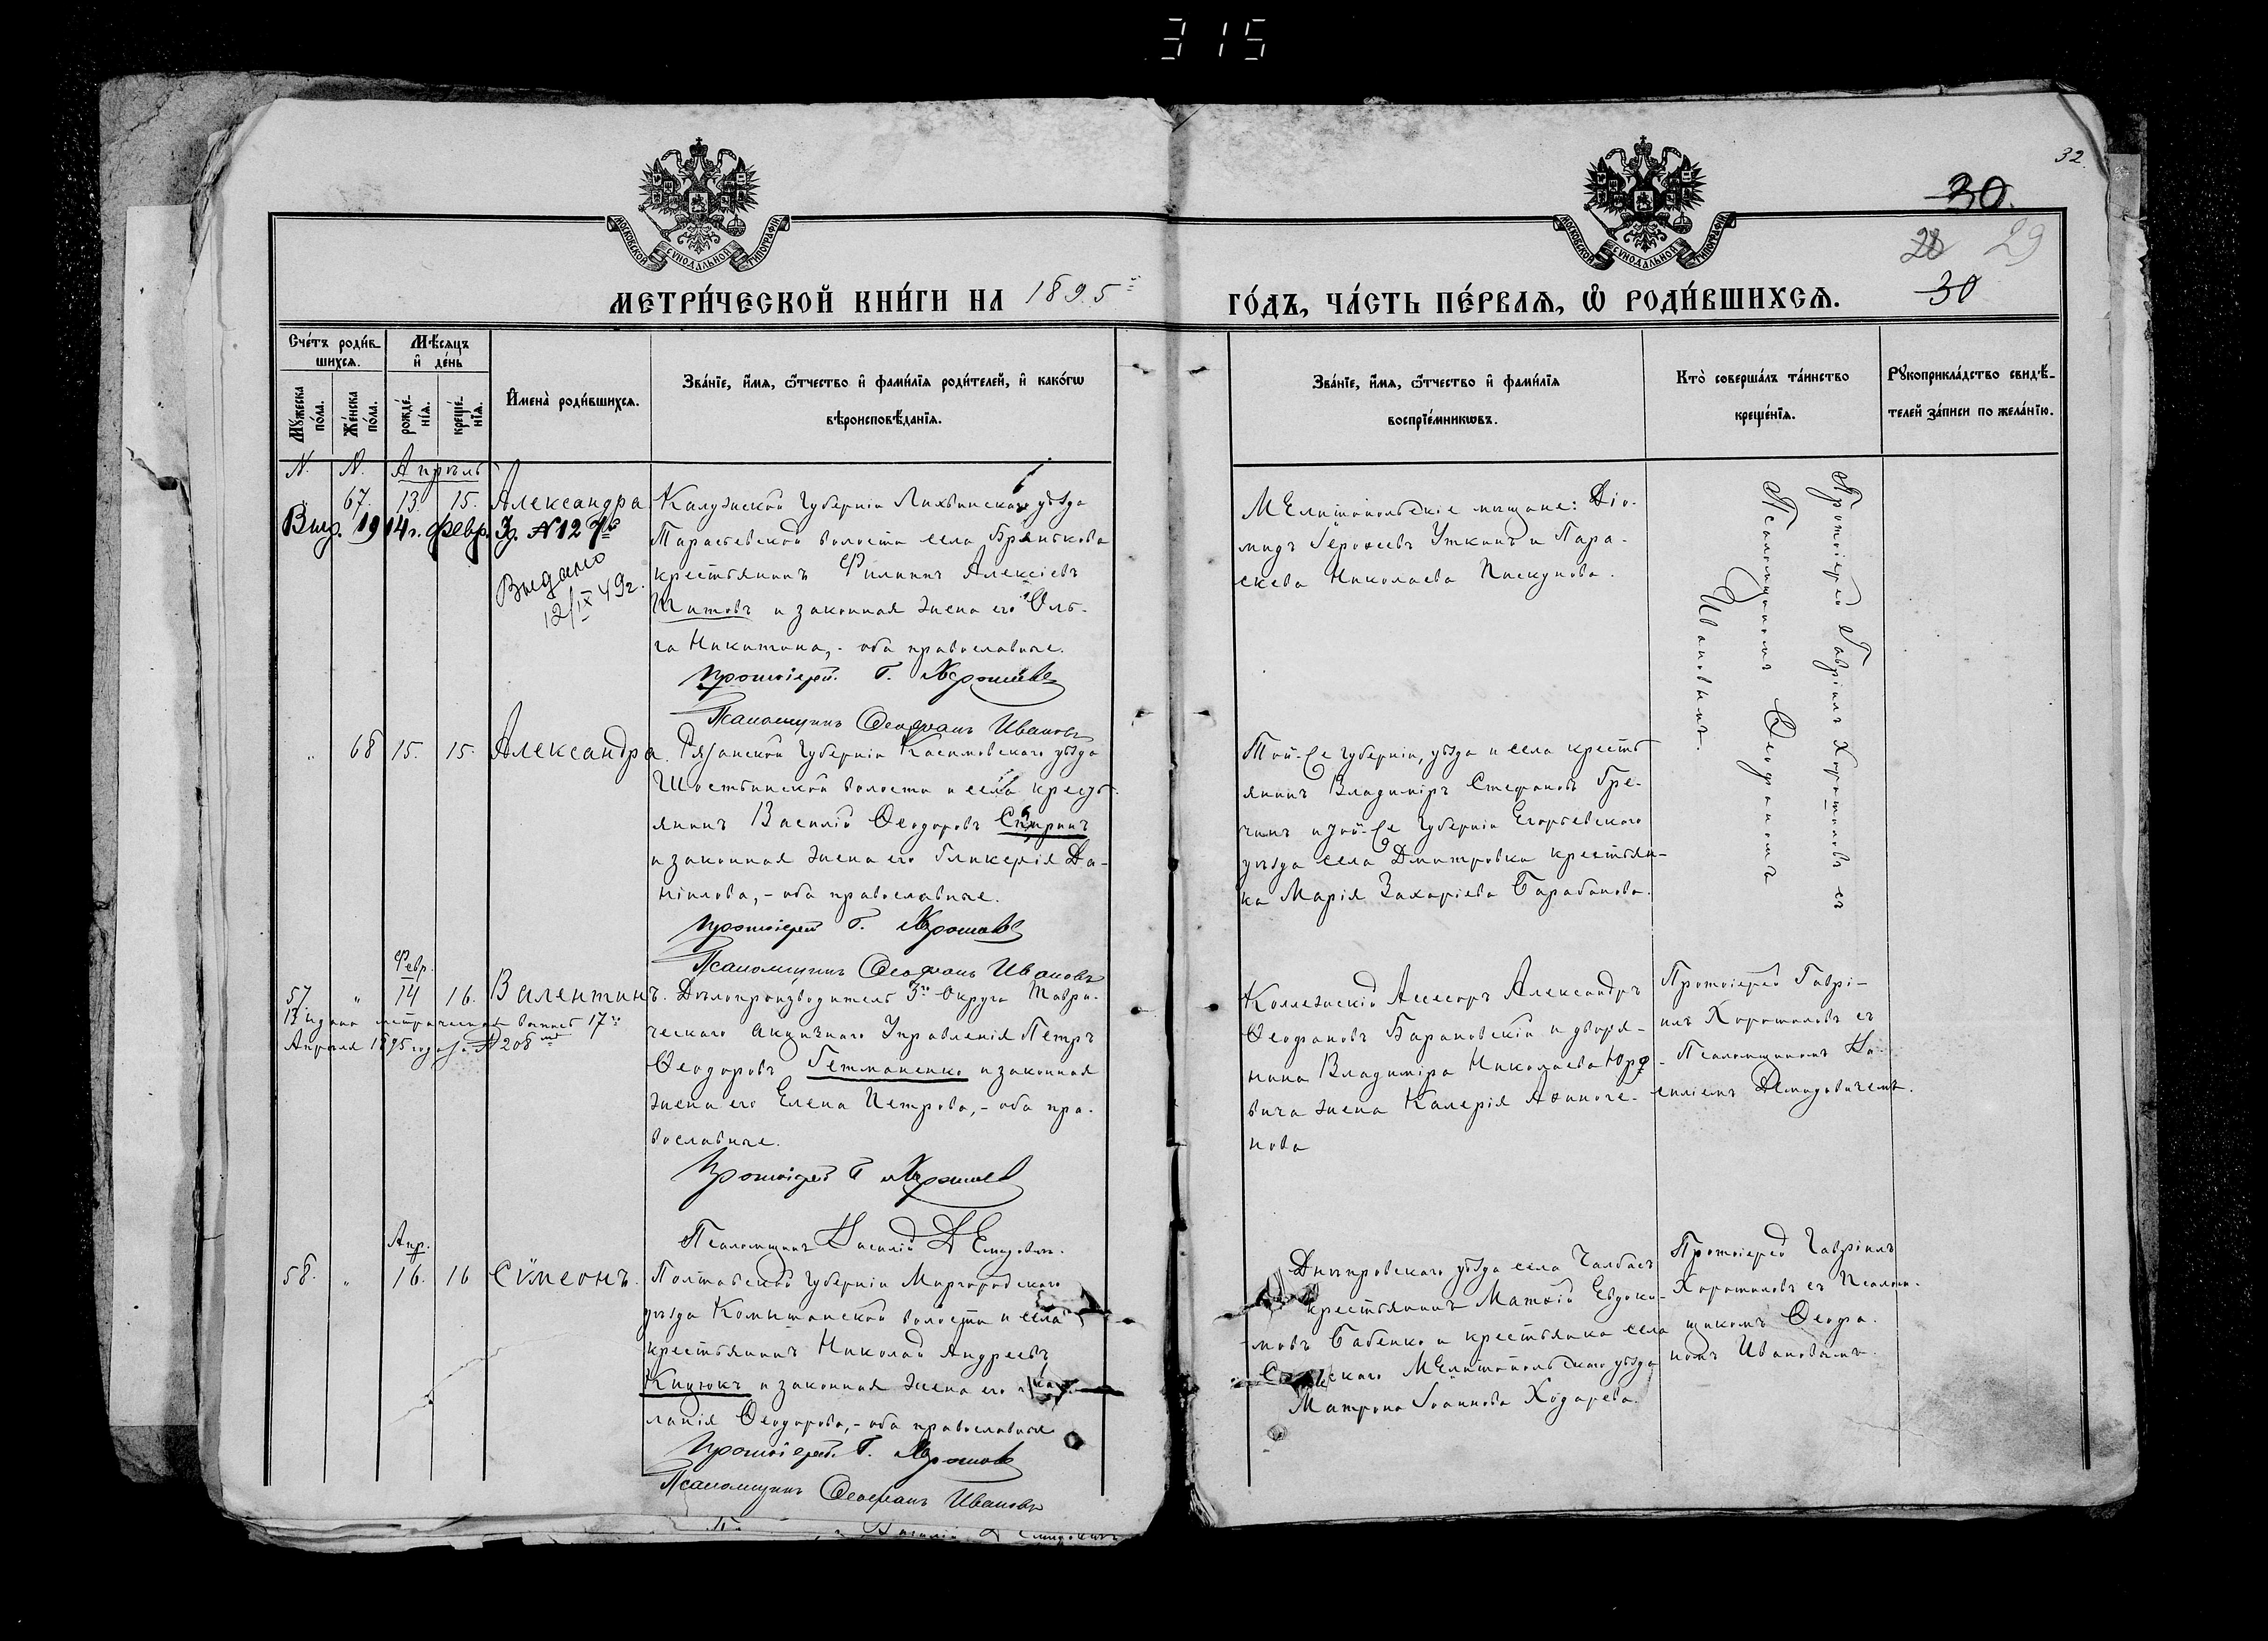 315
32
30.
28 29
30
МОСКОВСКОЙ СѴНОДАЛЬНОЙ ТИПОГРАФІИ
МОСКОВСКОЙ СѴНОДАЛЬНОЙ ТИПОГРАФІИ
МЕТРИ́ЧЕСКОЙ КНИ́ГИ НА 1895й
ГО́ДЪ, ЧА́СТЬ ПЕ́РВАѦ, Ѡ РОДИ́ВШИХСѦ.
Сче́тъ роди́в
шихсѧ.
Мѣ́сѧцъ
и҆ де́нь
Мꙋ́жеска по́ла.
Же́нска по́ла.
рожде́нїѧ.
креще́нїѧ.
И҆мена̀ роди́вшихсѧ.
Зва́нїе, и҆́мѧ, ѻ҆́тчество и҆ фами́лїѧ роди́телей, и҆ како́гѡ
вѣроисповѣ́данїѧ.
Зва́нїе, и҆́мѧ, ѻ҆́тчество и҆ фами́лїѧ
воспрїе́мникѡвъ.
Кто̀ соверша́лъ та́инство
креще́нїѧ.
Рꙋкоприкла́дство свидѣ́-
телей за́писи по жела́нїю.
N. N. Апрѣль
67. 13. 15. Александра
Выд. 1914 г. февр. 3 д. № 127
Выдано
12/IX 49 г.
Калужской Губерніи Лихвинскаго уѣзда
волости села
крестьянинъ Филиппъ Алексіевъ
Шитовъ и законная жена его Оль-
га Никитина, - оба православные.
Протоіерей Г. Хорошиловъ
Псаломщикъ Ѳеофанъ Ивановъ
Мелитопольскіе мѣщане: Діо-
мидъ Уткинъ и Пара-
скева Николаева Пискунова.
Протоіерей Гавріилъ Хорошиловъ съ
Псаломщикомъ Ѳеофаномъ
Ивановымъ.
„ 68 15. 15. Александра.
Рязанской Губерніи Касимовскаго уѣзда
Шостьинской волости и села кресть-
янинъ Василій Ѳеодоровъ Спиринъ
и законная жена его Гликерія Да-
ніилова, - оба православные.
Протоіерей Г. Хорошиловъ
Псаломщикъ Ѳеофанъ Ивановъ
Той-же Губерніи, уѣзда и села кресть-
янинъ Владиміръ Стефановъ Гре-
чинъ и той-же Губерніи Егорьевскаго
уѣзда села Дмитровки крестьян-
ка Марія Захаріева Барабанова.
Февр.
57 „ 14 16. Валентинъ.
Выдана метрическая выпись 17го
Апрѣля 1895 года за № 208
Дѣлопроизводитель 3го Округа Таври-
ческаго Акцизнаго Управленія Петръ
Ѳеодоровъ Гетманенко и законная
жена его Елена Петрова, - оба пра-
вославные.
Протоіерей Г Хорошиловъ
Псаломщикъ Василій Демидовичъ.
Коллежскій Асессоръ Александръ
Ѳеофановъ Барановскій и дворя-
нина Владиміра Николаева Юре-
вича жена Калерія Аѳиноге-
нова
Протоіерей Гаврі-
илъ Хорошиловъ съ
Псаломщикомъ Ва-
силіемъ Демидовичемъ.
Апр.
58. „ 16. 16 Сѵмеонъ.
Полтавской Губерніи Миргородскаго
уѣзда Комышанской волости и села
крестьянинъ Николай Андреевъ
Кицюкъ и законная жена его
ланія Ѳеодорова, - оба православные
Протоіерей Г. Хорошиловъ
Псаломщикъ Ѳеофанъ Ивановъ
Днѣпровскаго уѣзда села Чалбасъ
крестьянинъ Матѳій Евдоки-
мовъ Бабенко и крестьянка села
Мелитопольскаго уѣзда
Матрона Іоаннова Ходарева.
Протоіерей Гавріилъ
Хорошиловъ съ Псалом-
щикомъ Ѳеофа-
номъ Ивановымъ.
Василій Демидовичъ